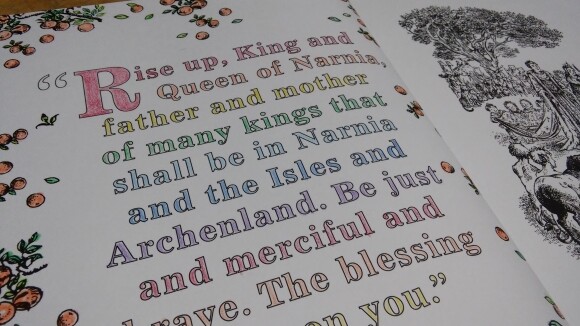 “Rise up, King and
Queen of Narnia,
father and mother
of many kings that
shall be in Narnia
and the Isles and
Archenland. Be just
and merciful and
brave. The blessing
on you.”